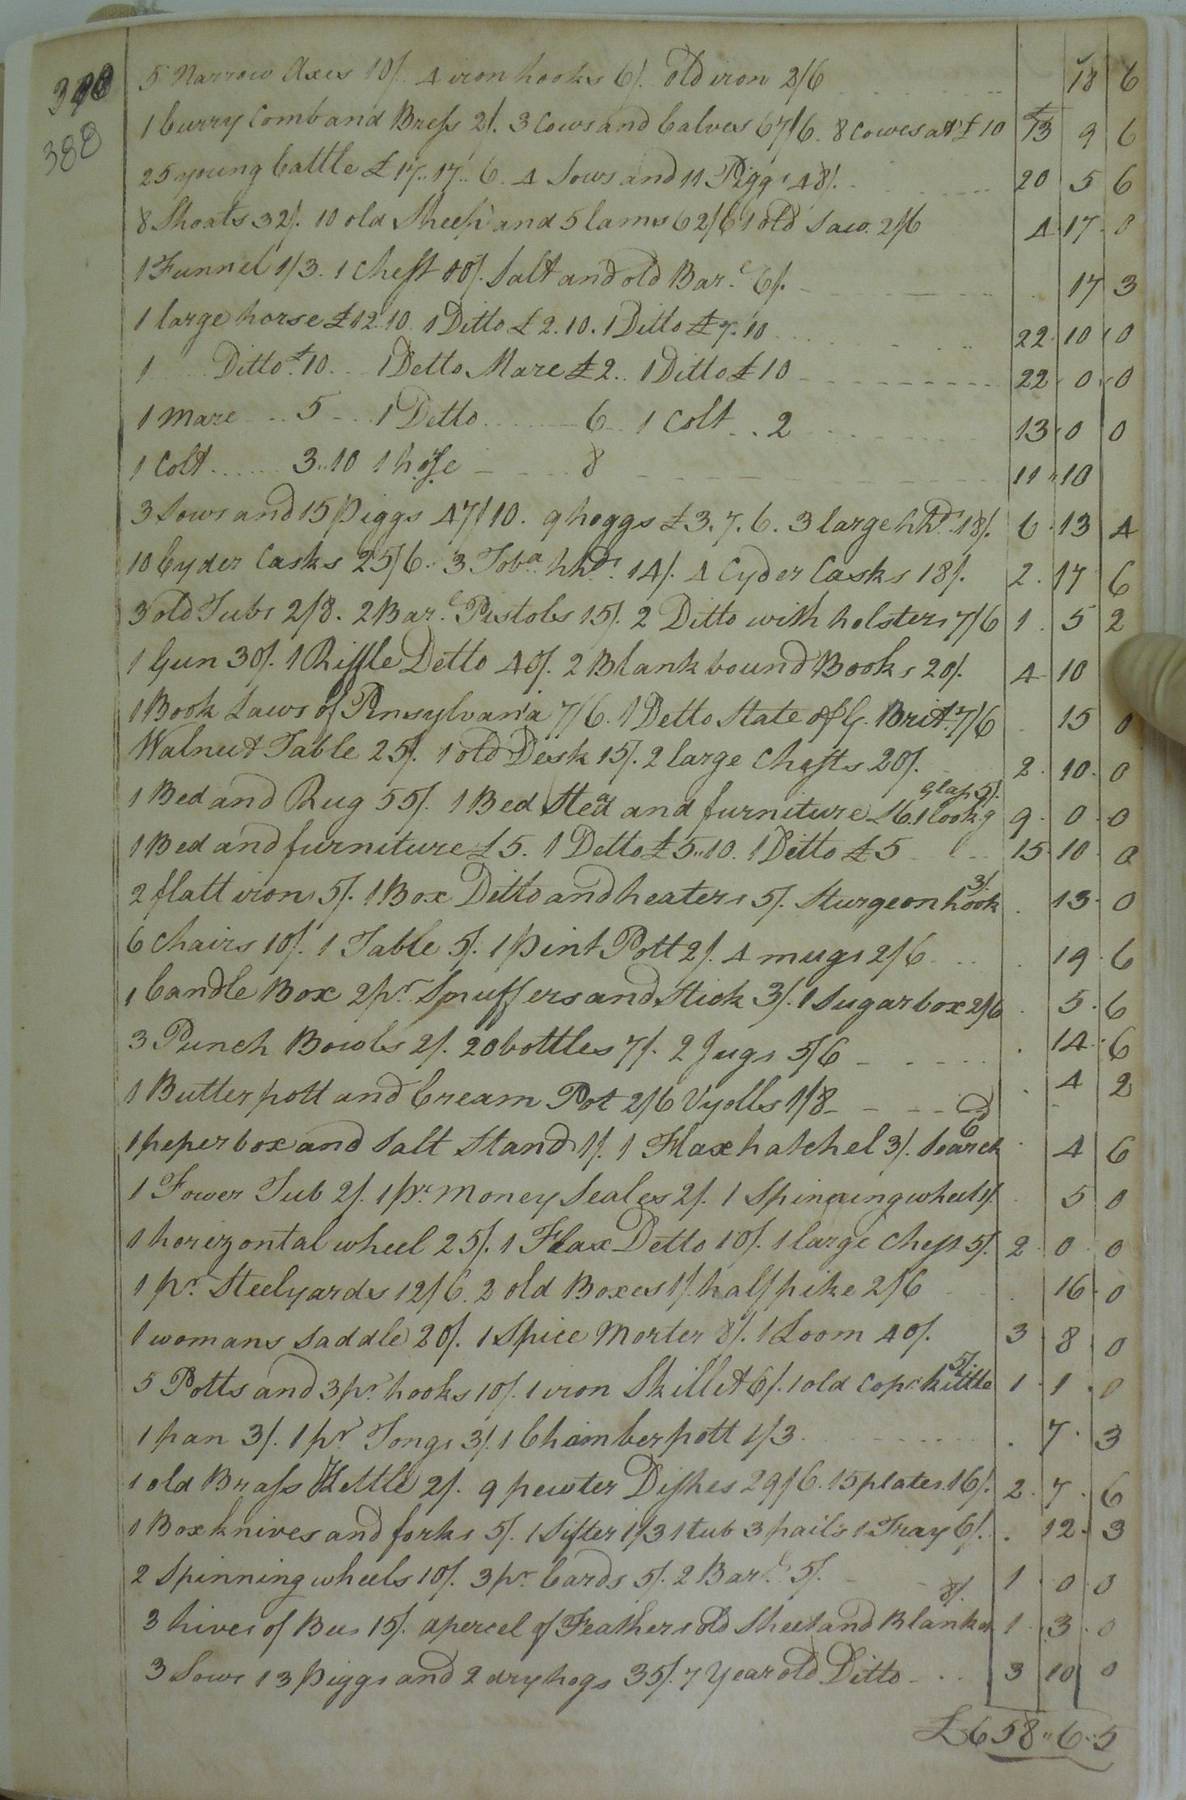 390
388
5 Narrow Axes 10/. 4 iron hooks 6/. Old iron 2/6 18 6
1 Curry Comb and Bress 2/. 3 Cows and Calves 67/6. 8 Cowes at £10 £13 9 6
25 young Cattle £17..17..6. 4 Sows and 11 Piggs 48/. 20 5 6
8 Shoats 32/. 10 old Sheep and 5 lams 62/6 1 old Saw 2/6 4 17 0
1 Funnel 1/3. 1 Chest 10/. Salt and old Bar.ls 6/. 17 3
1 large horse £12..10. 1 Ditto £2.10. 1 Ditto £7.10 22 10 0
1 Ditto £10... 1 Detto Mare £2.. 1 Ditto £10 22 0 0
1 Mare ... 5 ... 1 Detto ... 6 .. 1 Colt .. 2 13 0 0
1 Colt ... 3..10 1 horse ... 8 11 10
3 Sows and 15 Piggs 47/10. 9 hoggs £3.7.6. 3 large hhds. 18/. 6 13 4
10 Cyder Casks 25/6. 3 Toba. hhds. 14/. 4 Cyder Casks 18/. 2 17 6
3 old Tubs 2/8. 2 Bar.l Pistols 15/. 2 Ditto with holsters 7/6 1 5 2
1 Gun 30/. 1 Riffle Detto 40/. 2 Blank bound Books 20/. 4 10
1 Book Laws of Pensylvania 7/6. 1 Detto State of G. Brit. 7/6 15 0
Walnut Table 25/. 1 old Desk 15/. 2 large Chests 20/. 2 10 0
1 Bed and Rug 55/. 1 Bed Stead and furniture £6. 1 look'g glass 5/. 9 0 0
1 Bed and furniture £5. 1 Detto £5..10. 1 Ditto £5 15 10 0
2 flatt irons 5/. 1 Box Ditto and heaters 5/. Sturgeon hook 3/ 13 0
6 Chairs 10/. 1 Table 5/. 1 pint Pott 2/. 4 mugs 2/6 19 6
1 Candle Box 2 pr. Snuffers and Stick 3/. 1 Sugar box 2/6 5 6
3 Punch Bowls 2/. 20 bottles 7/. 2 Jugs 5/6 14 6
1 Butter pott and Cream Pot 2/6 Vyolls 1/8 4 2
1 peper box and Salt Stand 1/. 1 Flax hatchel 3/. Search 6d 4 6
1 Fower Tub 2/. 1 pr. Money Scales 2/. 1 Spinning wheel 1/. 5 0
1 horizontal wheel 25/. 1 Flax Detto 10/. 1 large Chest 5/. 2 0 0
1 pr. Steelyards 12/6. 2 old Boxes 1/. half pike 2/6 16 0
1 womans Saddle 20/. 1 Spice Morter 8/. 1 Loom 40/. 3 8 0
5 Potts and 3 pr. hooks 10/. 1 iron Skillet 6/. 1 old Copr. kittle 5/. 1 1 0
1 pan 3/. 1 pr. Tongs 3/. 1 Chamber pott 1/3 7 3
1 old Brass Kettle 2/. 9 pewter Dishes 29/6. 15 plates 16/. 2 7 6
1 Box knives and forks 5/. 1 Sifter 1/3 1 tub 3 pails 1 Tray 6/. 12 3
2 Spinning wheels 10/. 3 pr. Cards 5/. 2 Bar.ls 5/. 1 0 0
3 hives of Bees 15/. a percel of Feathers old Sheet and Blanket 8/. 1 3 0
3 Sows 13 Piggs and 2 dry hogs 35/. 7 Year old Ditto 3 10 0
£658..6..5